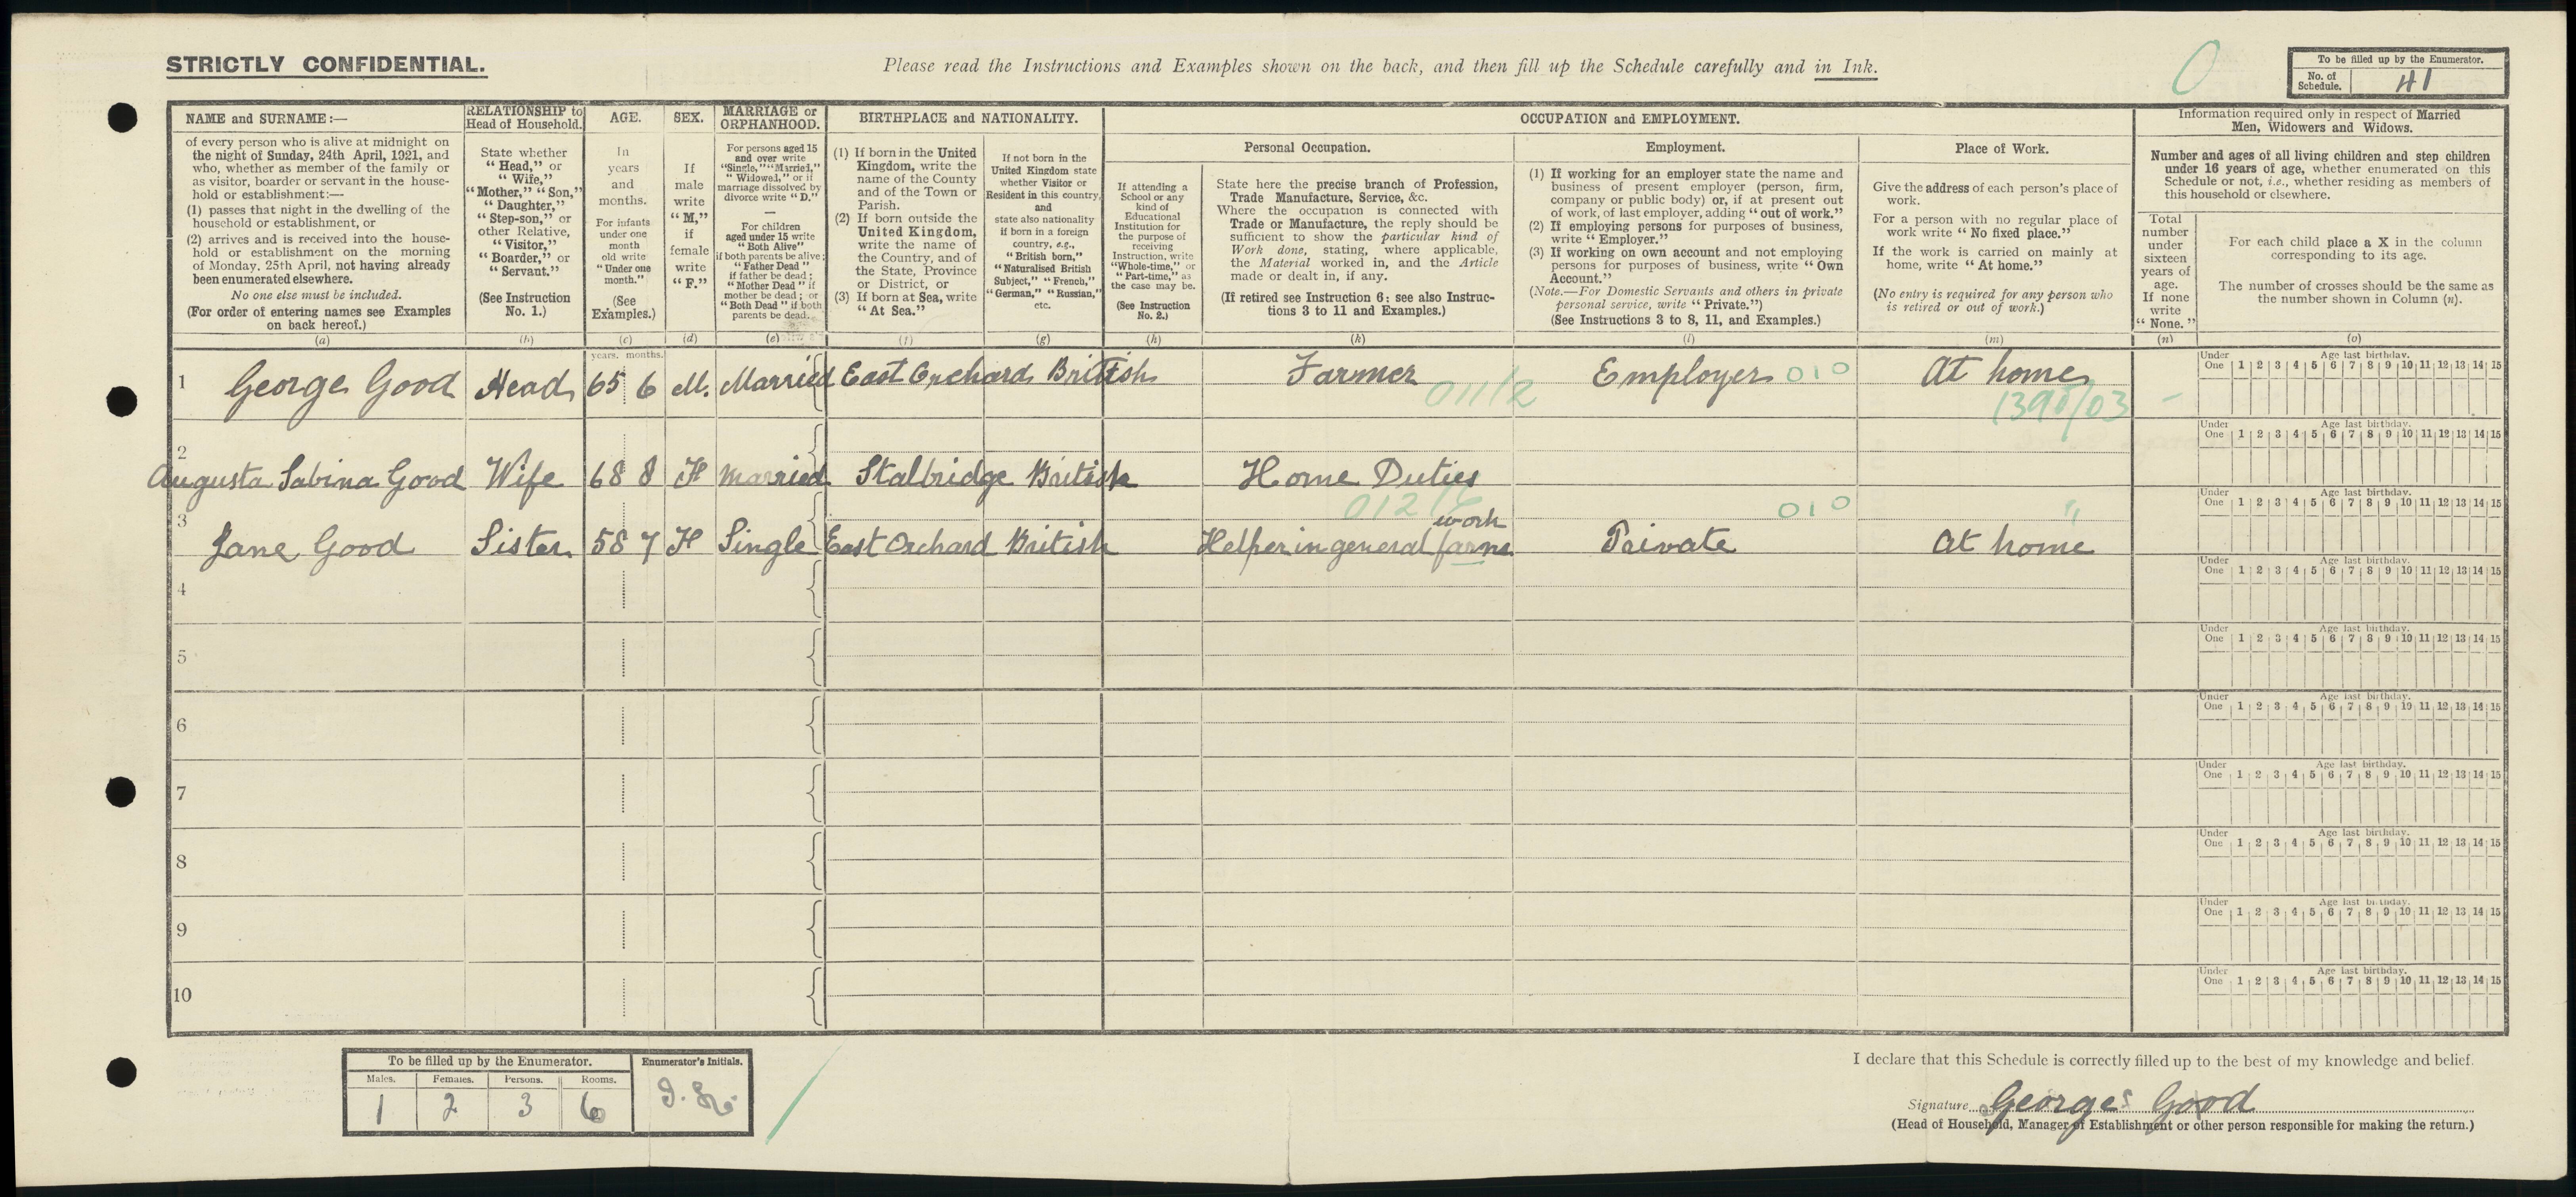 STRICTLY CONFIDENTIAL.
Please read the Instructions and Examples shown on the back, and then fill up the Schedule carefully and in Ink.
0
To be filled up by the Enumerator.
No. of Schedule. 41
NAME and SURNAME:—
of every person who is alive at midnight on
the night of Sunday, 24th April, 1921, and
who, whether as member of the family or
as visitor, boarder or servant in the house-
hold or establishment:—
(1) passes that night in the dwelling of the
household or establishment, or
(2) arrives and is received into the house-
hold or establishment on the morning
of Monday, 25th April, not having already
been enumerated elsewhere.
No one else must be included.
(For order of entering names see Examples
on back hereof.)
(a)
RELATIONSHIP to
Head of Household.
State whether
"Head," or
"Wife,"
"Mother," "Son,"
"Daughter,"
"Step-son," or
other Relative,
"Visitor,"
"Boarder," or
"Servant."
(See Instruction
No. 1.)
(b)
AGE.
In
years
and
months.
For infants
under one
month
old write
"Under one
month."
(See
Examples.)
(c)
SEX.
If
male
write
"M,"
if
female
write
"F."
(d)
MARRIAGE or
ORPHANHOOD.
For persons aged 15
and over write
"Single," "Married,"
"Widowed," or if
marriage dissolved by
divorce write "D."
—
For children
aged under 15 write
"Both Alive"
if both parents be alive;
"Father Dead"
if father be dead;
"Mother Dead" if
mother be dead; or
"Both Dead" if both
parents be dead.
(e)
BIRTHPLACE and NATIONALITY.
(1) If born in the United
Kingdom, write the
name of the County
and of the Town or
Parish.
(2) If born outside the
United Kingdom,
write the name of
the Country, and of
the State, Province
or District, or
(3) If born at Sea, write
"At Sea."
(f)
If not born in the
United Kingdom state
whether Visitor or
Resident in this country,
and
state also nationality
if born in a foreign
country, e.g.,
"British born,"
"Naturalised British
Subject," "French,"
"German," "Russian,"
etc.
(g)
OCCUPATION and EMPLOYMENT.
Personal Occupation.
If attending a
School or any
kind of
Educational
Institution for
the purpose of
receiving
Instruction, write
"Whole-time," or
"Part-time," as
the case may be.
(See Instruction
No. 2.)
(h)
State here the precise branch of Profession,
Trade Manufacture, Service, &c.
Where the occupation is connected with
Trade or Manufacture, the reply should be
sufficient to show the particular kind of
Work done, stating, where applicable,
the Material worked in, and the Article
made or dealt in, if any.
(If retired see Instruction 6: see also Instruc-
tions 3 to 11 and Examples.)
(k)
Employment.
(1) If working for an employer state the name and
business of present employer (person, firm,
company or public body) or, if at present out
of work, of last employer, adding "out of work."
(2) If employing persons for purposes of business,
write "Employer."
(3) If working on own account and not employing
persons for purposes of business, write "Own
Account."
(Note.—For Domestic Servants and others in private
personal service, write "Private.")
(See Instructions 3 to 8, 11, and Examples.)
(l)
Place of Work.
Give the address of each person's place of
work.
For a person with no regular place of
work write "No fixed place."
If the work is carried on mainly at
home, write "At home."
(No entry is required for any person who
is retired or out of work.)
(m)
Information required only in respect of Married
Men, Widowers and Widows.
Number and ages of all living children and step children
under 16 years of age, whether enumerated on this
Schedule or not, i.e., whether residing as members of
this household or elsewhere.
Total
number
under
sixteen
years of
age.
If none
write
"None."
(n)
For each child place a X in the column
corresponding to its age.
The number of crosses should be the same as
the number shown in Column (n).
(o)
years. months.
1 George Good Head 65 6 M. Married East Orchard British Farmer 011/2 Employer 010 At home
Under One Age last birthday. 1 2 3 4 5 6 7 8 9 10 11 12 13 14 15
2 Augusta Sabina Good Wife 68 8 F Married Stalbridge British Home Duties
Under One Age last birthday. 1 2 3 4 5 6 7 8 9 10 11 12 13 14 15
3 Jane Good Sister 58 7 F Single East Orchard British Helper in general farm work 012/6 Private 010 At home "
Under One Age last birthday. 1 2 3 4 5 6 7 8 9 10 11 12 13 14 15
4
Under One Age last birthday. 1 2 3 4 5 6 7 8 9 10 11 12 13 14 15
5
Under One Age last birthday. 1 2 3 4 5 6 7 8 9 10 11 12 13 14 15
6
Under One Age last birthday. 1 2 3 4 5 6 7 8 9 10 11 12 13 14 15
7
Under One Age last birthday. 1 2 3 4 5 6 7 8 9 10 11 12 13 14 15
8
Under One Age last birthday. 1 2 3 4 5 6 7 8 9 10 11 12 13 14 15
9
Under One Age last birthday. 1 2 3 4 5 6 7 8 9 10 11 12 13 14 15
10
Under One Age last birthday. 1 2 3 4 5 6 7 8 9 10 11 12 13 14 15
To be filled up by the Enumerator.
Males. Females. Persons. Rooms.
1 2 3 6
Enumerator's Initials.
I declare that this Schedule is correctly filled up to the best of my knowledge and belief.
Signature George Good
(Head of Household, Manager of Establishment or other person responsible for making the return.)